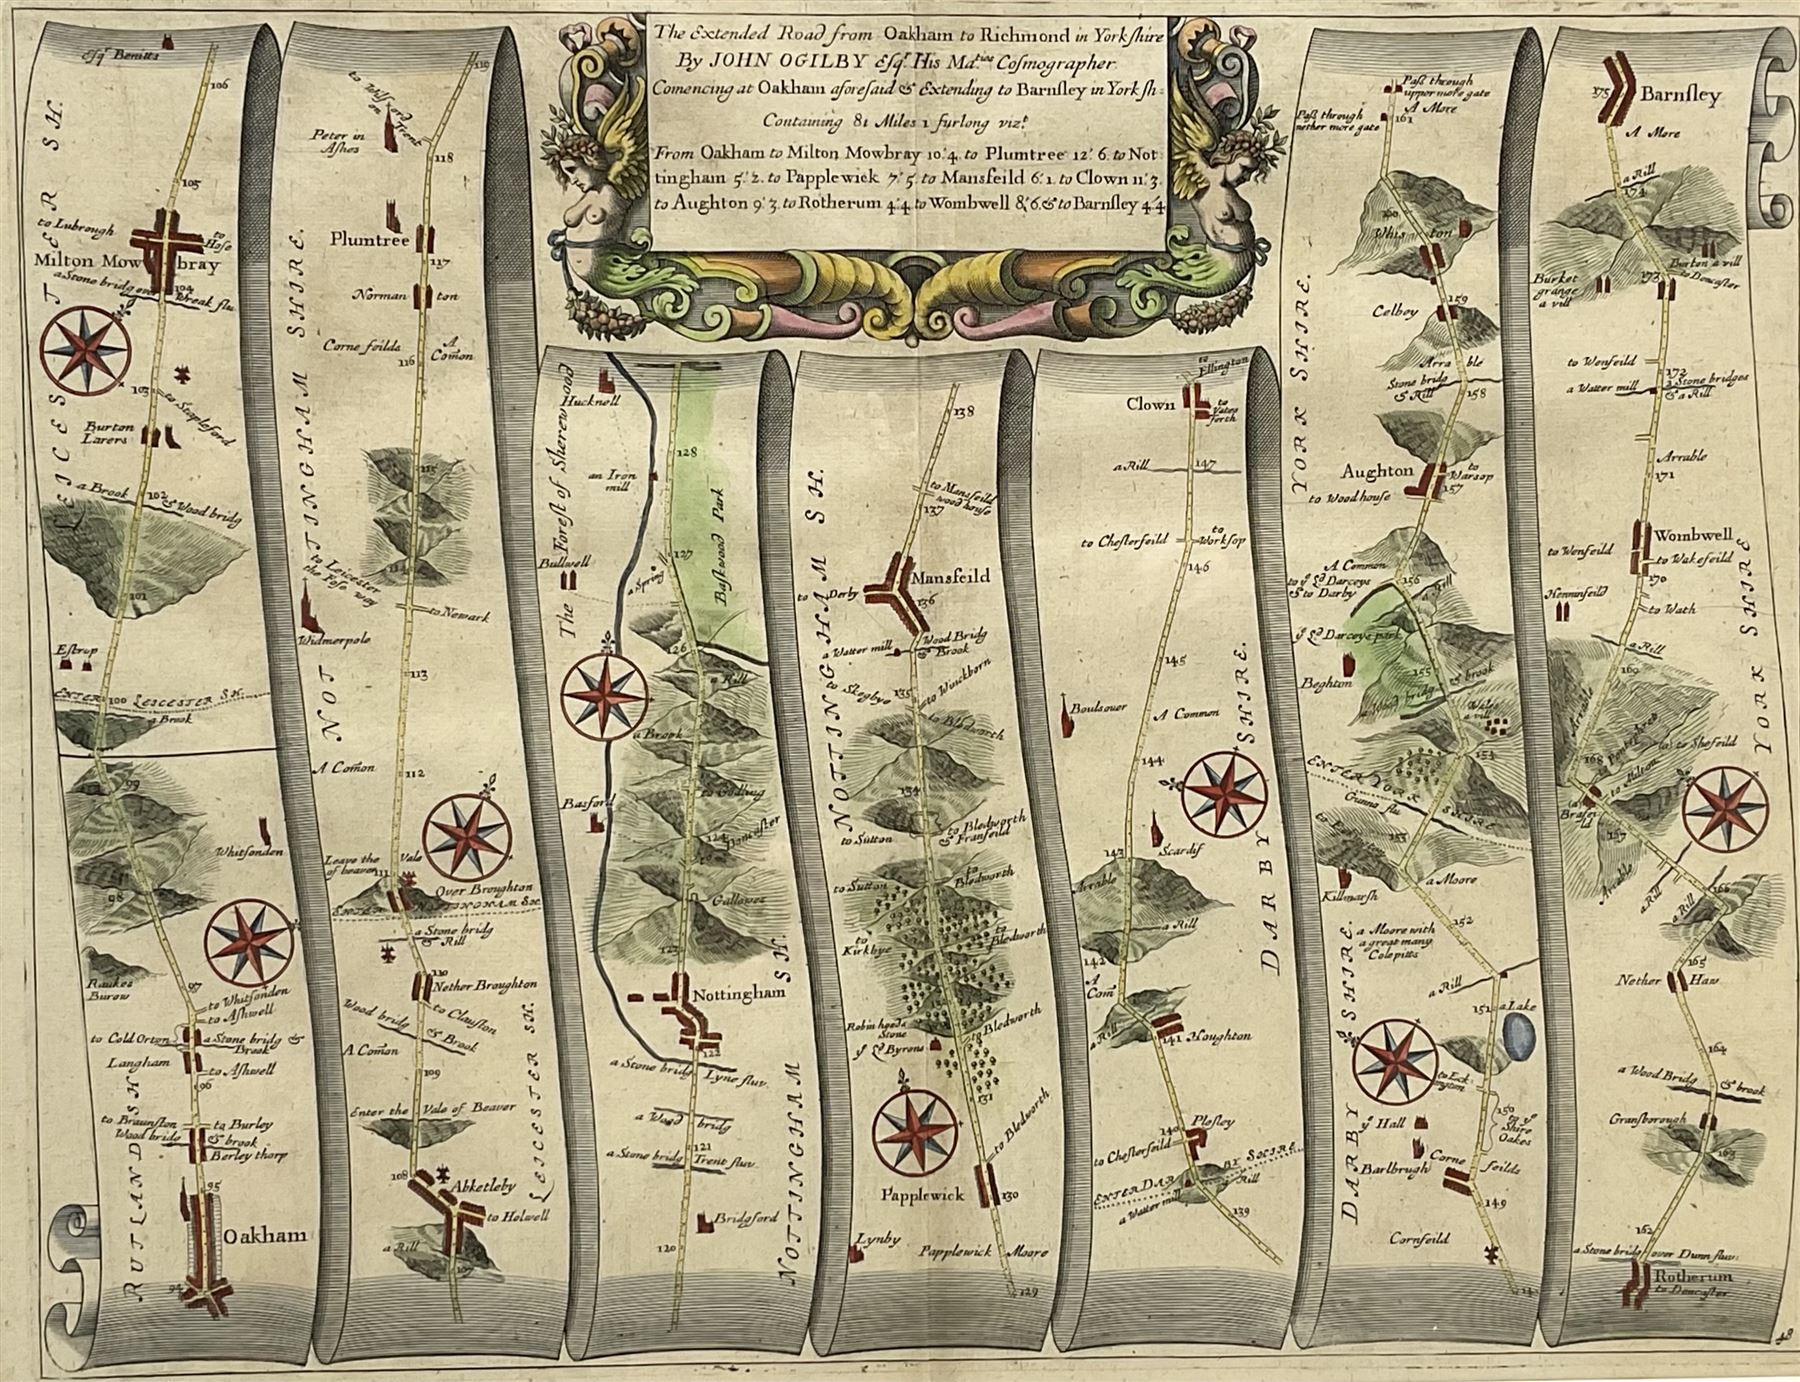 The Extended Road from Oakham to Richmond in Yorkshire
By JOHN OGILBY Esqr. His Maties Cosmographer
Comencing at Oakham aforesaid & Extending to Barnsley in Yorksh:
Containing 81 Miles 1 furlong vizt.
From Oakham to Milton Mowbray 10'4. to Plumtree 12'6. to Not
tingham 5'2. to Papplewick 7'5. to Mansfeild 6'1. to Clown 11'3.
to Aughton 9'3. to Rotherum 4'4. to Wombwell 8'6. & to Barnsley 4'4
Esqr. Benitts
106
105
to Lubrough
to Hose
Milton Mowbray
104
a Stone bridg over Wreak flu.
103
to Stapleford
Burton Larers
a Brook
102
& Wood bridg
LEICESTER SH.
101
Estrup
ENTER LEICESTER SH.
100
a Brook
99
Whitsonden
98
Raukes Burow
97
to Whitsonden
to Ashwell
to Cold Orton
a Stone bridg & Brook
Langham
to Ashwell
96
to Braunston
to Burley
Wood bridg & brook
Berley thorp
RUTLAND SH
95
Oakham
94
119
to Wilford on Trent
Peter in Ashes
118
Plumtree
117
Normanton
Corne feilds
116
A Comon
115
114
NOTTINGHAM SHIRE.
to Leicester the Fose way
to Newark
Widmerpole
113
A Comon
112
Leave the Vale of beaver
111
Over Broughton
ENTER NOTTINGHAM SH.
a Stone bridg & Rill
110
Nether Broughton
Wood bridg & Brook
to Clauston
A Comon
109
Enter the Vale of Beaver
108
Abketleby
to Holwell
a Rill
107
LEICESTER SH.
Hucknell
The Forest of Sherewood
128
an Iron mill
127
Baskwood Park
Bullwell
a Spring
126
a Rill
a Brook
to Godling
Basford
124
to Doncaster
Gallowes
123
Nottingham
122
a Stone bridg Lyne fluv.
a Wood bridg
121
a Stone bridg Trent fluv.
Bridgford
120
NOTTINGHAM SH.
138
to Mansfeild wood house
137
Mansfeild
to Derby
136
a Watter mill
Wood Bridg & Brook
to Skegbye
135
to Winckborn
to Bledworth
134
to Sutton
to Bledworth & Franfeild
to Sutton
to Bledworth
to Kirkbye
to Bledworth
Robin hoods Stone
to Bledworth
ye Ld. Byrons
131
to Bledworth
Papplewick
130
Lynby
Papplewick Moore
129
NOTTINGHAM SH.
to Ellington
Clown
to Yatesforth
a Rill
147
to Chesterfeild
to Worksop
146
145
Boulsover
A Common
144
Scardif
143
Arrable
a Rill
142
A Com
a Rill
141
Houghton
140
Plesley
to Chesterfeild
ENTER DARBY SHIRE
a Watter mill
Rill
139
DARBY SHIRE.
Pass through upper more gate
A More
Pass through nether more gate
161
160
Whiston
159
Celbey
Arrable
Stone bridg & Rill
158
Aughton
to Warsop
to Wood house
157
A Common
to ye Ld. Darceys & to Darby
156
a Rill
ye Ld. Darceys park
155
Beghton
a Wood bridg & brook
Wales a vill
154
ENTER YORK SHIRE
Gunno flu
153
Killmarsh
a Moore
152
a Moore with a great many Colepitts
a Rill
151
a Lake
to Eckington
150
to ye Shire Oakes
ye Hall
Barlbrugh
Corne feilds
149
Cornfeild
YORK SHIRE.
DARBY SHIRE.
175
Barnsley
A More
a Rill
174
Burton a vill
Burket grange a vill
173
to Doncaster
to Wenfeild
172
a Watter mill
2 Stone bridges & a Rill
Arrable
171
Wombwell
to Wenfeild
to Wakefeild
170
Hemmifeild
to Wath
a Rill
169
Arrable
to Shefeild
168
to Hilton
167
Arrable
a Rill
166
a Rill
165
Nether Haw
164
a Wood Bridg & brook
Gransborough
163
162
a Stone bridg over Dunn fluv:
Rotherum
to Doncaster
YORK SHIRE
48